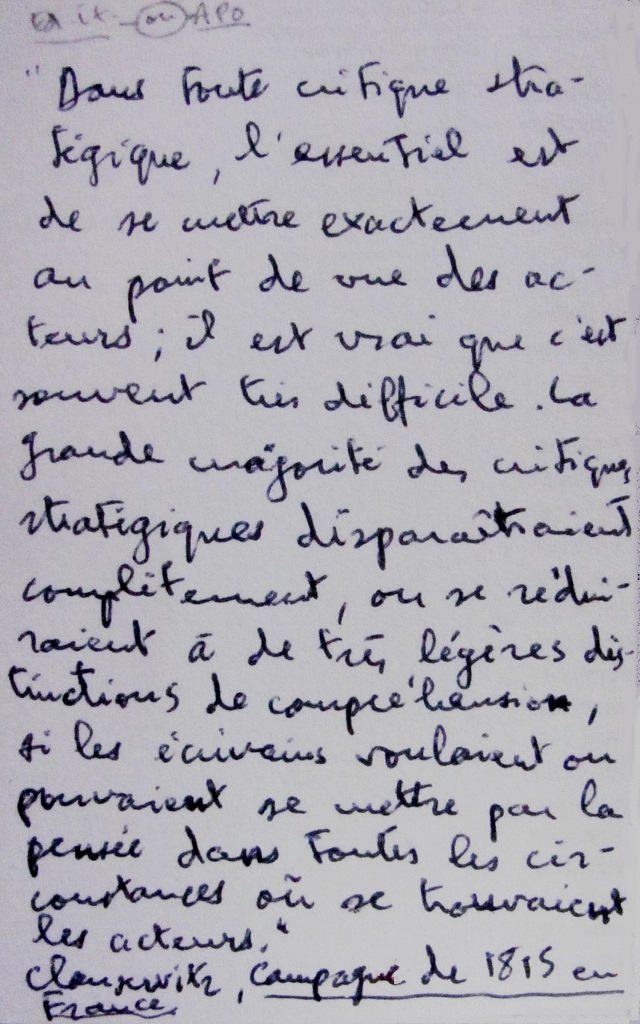 ou APO
" Dans toute critique stra-
tégique, l'essentiel est
de se mettre exactement
au point de vue des ac-
teurs ; il est vrai que c'est
souvent très difficile. La
grande majorité des critiques
stratégiques disparaîtraient
complètement, ou se rédui-
raient à de très légères dis-
tinctions de compréhension,
si les écrivains voulaient ou
pouvaient se mettre par la
pensée dans toutes les cir-
constances où se trouvaient
les acteurs."
Clausewitz, Campagne de 1815 en
France.